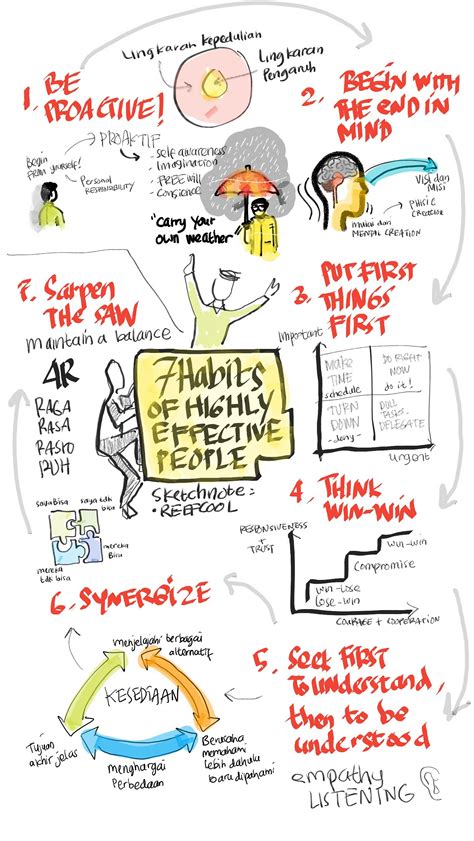 Lingkaran Kepedulian
Lingkaran
Pengaruh
1. BE
PROACTIVE!
PROAKTIF
Begin
From yourself!
Personal
RESPONSIBILITY
- Self awareness
- Imagination
- FREE will
- Conscience
"Carry your
own weather"
2. BEGIN WITH
THE END IN
MIND
Visi dan
Misi
PHISIC
CREATION
mulai dari
MENTAL CREATION
3. PUT FIRST
THINGS
FIRST
Important
MAKE
TIME
schedule
DO RIGHT
NOW
do it!
TURN
DOWN
-deny-
DULL
TASKS-
DELEGATE
urgent
4. THINK
WIN-WIN
RESPONSIVENESS
+
TRUST
WIN-WIN
Compromise
WIN-LOSE
LOSE-WIN
COURAGE + COOPERATION
5. Seek First
To understand,
then to be
understood
empathy
LISTENING
6. SYNERGIZE
menjelajahi berbagai
alternatif
KESEDIAAN
Tujuan
akhir jelas
menghargai
Perbedaan
Berusaha
memahami
lebih dahulu
baru dipahami
7. Sarpen
THE SAW
maintain a balance
4R
RAGA
RASA
RASIO
RUH
saya bisa
saya tdk
bisa
mereka
tdk bisa
mereka
Bisa
7 Habits
OF HIGHLY
EFFECTIVE
PEOPLE
sketchnote:
• REEFCOOL